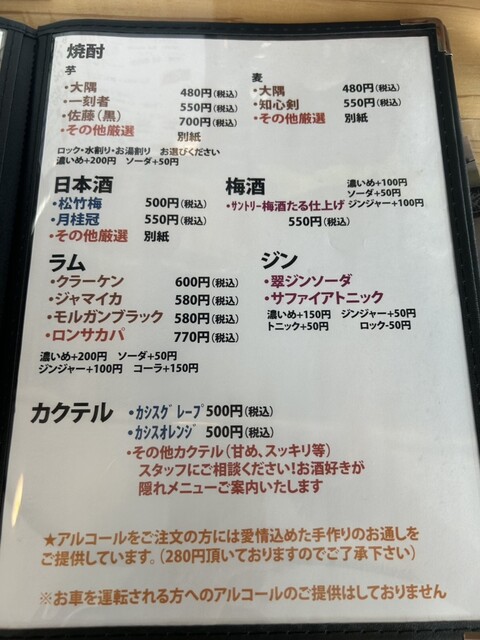 焼酎
芋
・大隅 480円(税込)
・一刻者 550円(税込)
・佐藤(黒) 700円(税込)
・その他厳選 別紙
麦
・大隅 480円(税込)
・知心剣 550円(税込)
・その他厳選 別紙
ロック・水割り・お湯割り お選びください
濃いめ+200円 ソーダ+50円
日本酒
・松竹梅 500円(税込)
・月桂冠 550円(税込)
・その他厳選 別紙
梅酒
濃いめ+100円
ソーダ+50円
ジンジャー+100円
・サントリー梅酒たる仕上げ
550円(税込)
ラム
・クラーケン 600円(税込)
・ジャマイカ 580円(税込)
・モルガンブラック 580円(税込)
・ロンサカパ 770円(税込)
濃いめ+200円 ソーダ+50円
ジンジャー+100円 コーラ+150円
ジン
・翠ジンソーダ
・サファイアトニック
濃いめ+150円 ジンジャー+50円
トニック+50円 ロック-50円
カクテル
・カシスグレープ 500円(税込)
・カシスオレンジ 500円(税込)
・その他カクテル(甘め、スッキリ等)
スタッフにご相談ください!お酒好きが
隠れメニューご案内いたします
★アルコールをご注文の方には愛情込めた手作りのお通しを
ご提供しています。(280円頂いておりますのでご了承下さい)
※お車を運転される方へのアルコールのご提供はしておりません